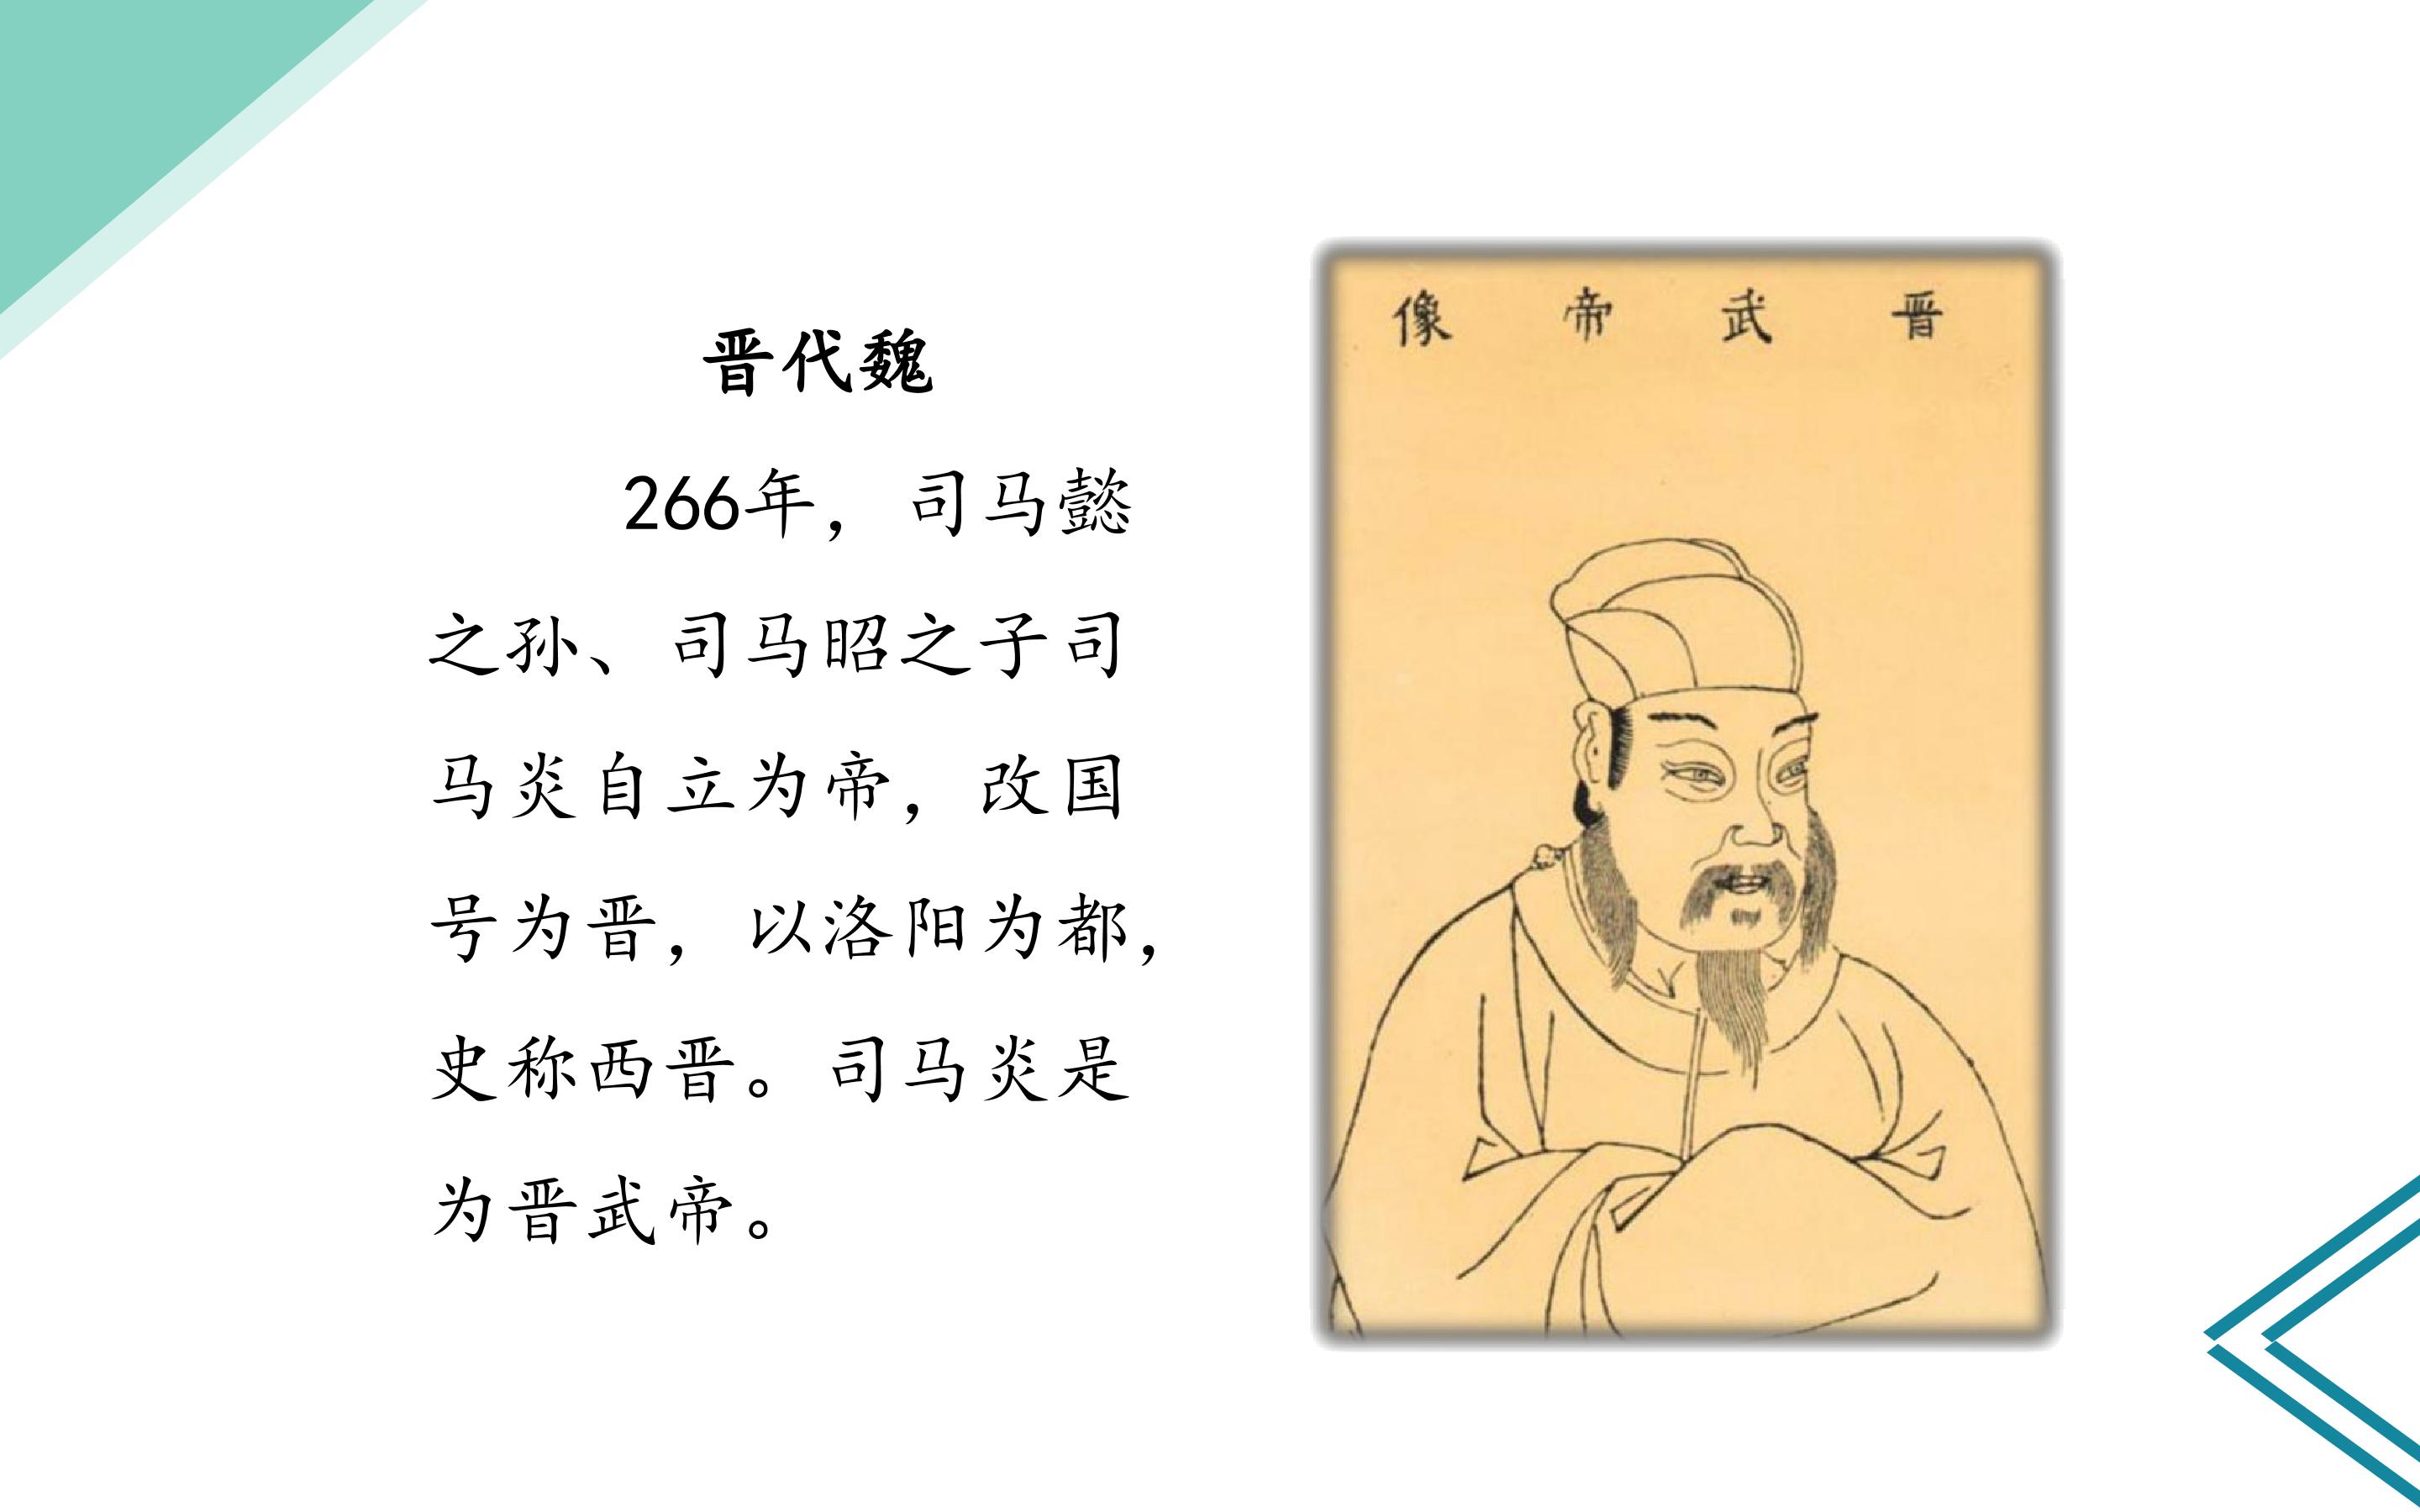 晋代魏
266年，司马懿
之孙、司马昭之子司
马炎自立为帝，改国
号为晋，以洛阳为都，
史称西晋。司马炎是
为晋武帝。
晋武帝像